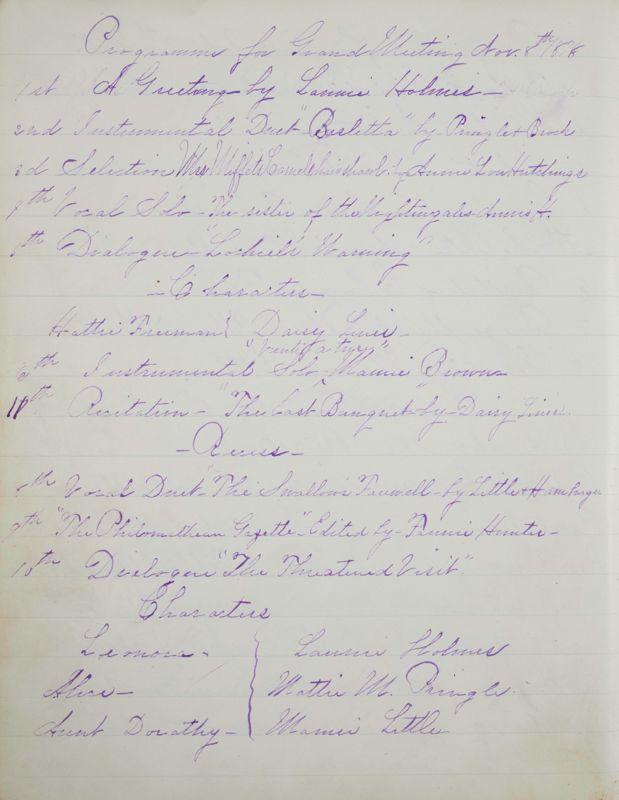 Programme for Grand Meeting Nov. 8th 1878
1st A Greeting by Lannie Holmes -
2nd Instrumental Duet "Barletta" by Pringle & Brock
3d Selection Mrs Miffets Camels hair shawl by Annie Lou Hutchings
4th Vocal Solo - The sister of the Nightingales Annie H.
5th Dialogue - "Lochiel's Warning"
- Characters -
Hattie Freeman { Daisy Linie -
6th Instrumental Solo Mamie Brown
7th Recitation - "The Last Banquet" by - Daisy Linie.
- Recess -
8th Vocal Duet - The Swallows Farewell - by Little & Hamburger
9th "The Philomathean Gazette" - Edited by - Fannie Hunter -
10th Dialogue "The Threatened Visit"
Characters
Leonora - Lannie Holmes
Alice - Mattie M. Pringle
Aunt Dorathy - Mamie Little